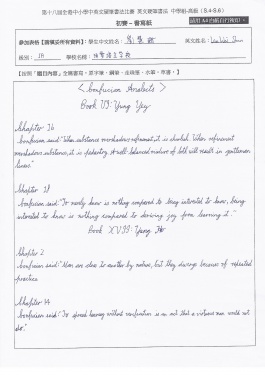 第十八屆全港中小學中英文硬筆書法比賽 英文硬筆書法 中學組-高級 (S.4-S.6)
初賽 - 書寫紙
請用 A4 白紙自行複印
參加表格【請填妥所有資料】 學生中文姓名：
英文姓名：
級別：
學校名稱：
【按照「題目內容」全篇書寫，原字筆、鋼筆、走珠筆、水筆，不書。】
< Confucian Analects >
Book VI: Yung Yey
Chapter 16
Confucius said: "When substance overshadows refinement, it is churlish. When refinement
overshadows substance, it is pedantry. A well-balanced mixture of both will result in gentleman-
liness."
Chapter 18
Confucius said: "To merely know is nothing compared to being interested to know, being
interested to know is nothing compared to deriving joy from learning it."
Book XVII: Yang Ho
Chapter 2
Confucius said: "Men are close to another by nature, but they diverge because of repeated
practice.
Chapter 14
Confucius said: "To spread hearsay without verification is an act that a virtuous man would not
do."